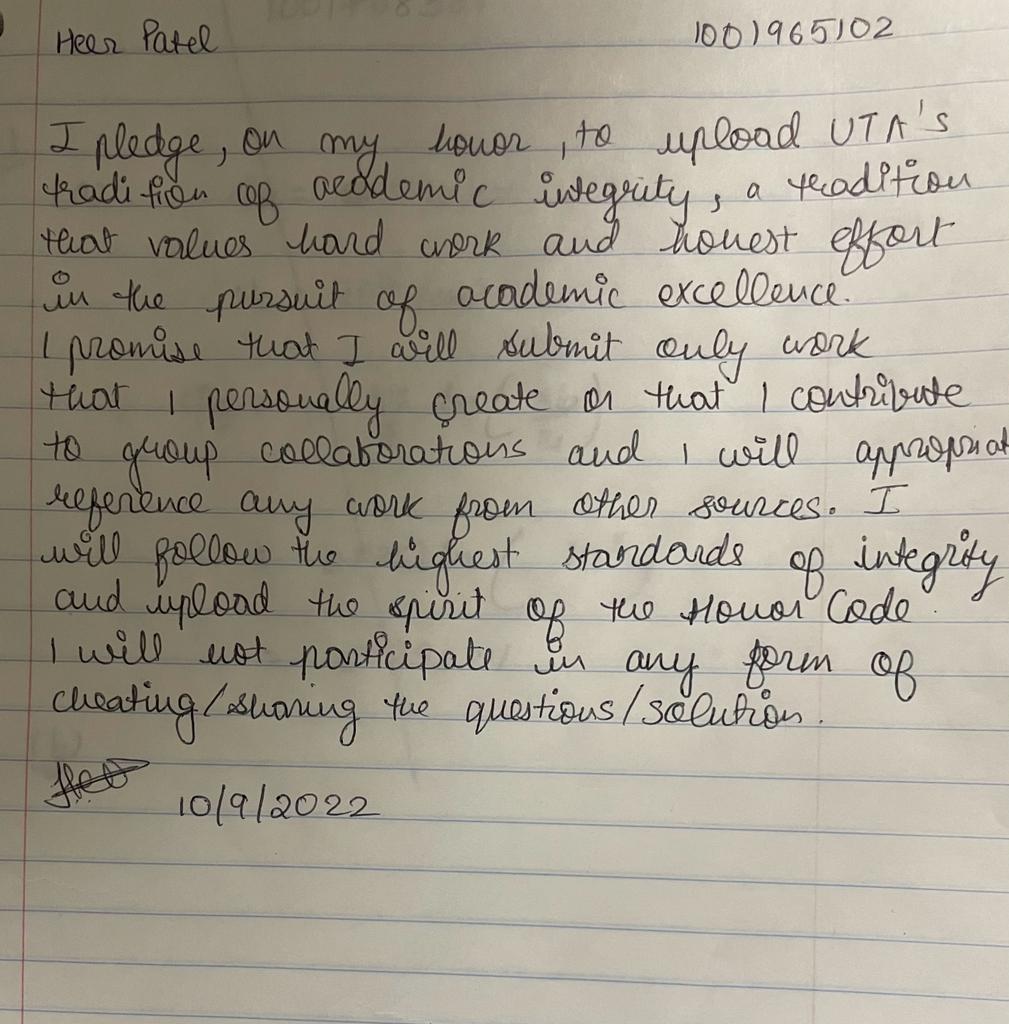 Heer Patel 1001965102
I pledge, on my honor, to upload UTA's
tradition of academic integrity, a tradition
that values hard work and honest effort
in the pursuit of academic excellence.
I promise that I will submit only work
that I personally create or that I contribute
to group collaborations and I will appropriat
reference any work from other sources. I
will follow the highest standards of integrity
and upload the spirit of the Honor Code.
I will not participate in any form of
cheating/sharing the questions/solution.
10/9/2022